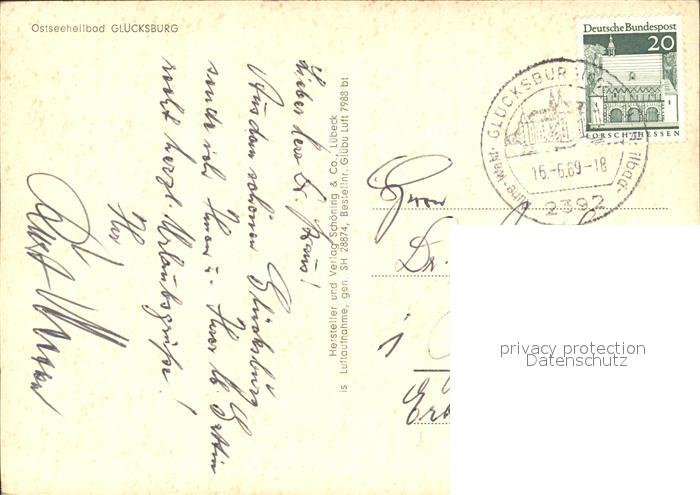 Ostseeheilbad GLÜCKSBURG
Lieber Herr Dr.
Aus dem schönen Glücksburg
sende ich Ihnen u. Ihrer lb. Gattin
recht herzl. Urlaubsgrüße!
Ihr
Hersteller und Verlag Schöning & Co., Lübeck
is Luftaufnahme, gen. SH 28874, Bestellnr. Glübu Luft 7988 bt
Deutsche Bundespost
20
LORSCH/HESSEN
GLÜCKSBURG
16.-6.69-18
2392
Herrn
Dr.
privacy protection
Datenschutz